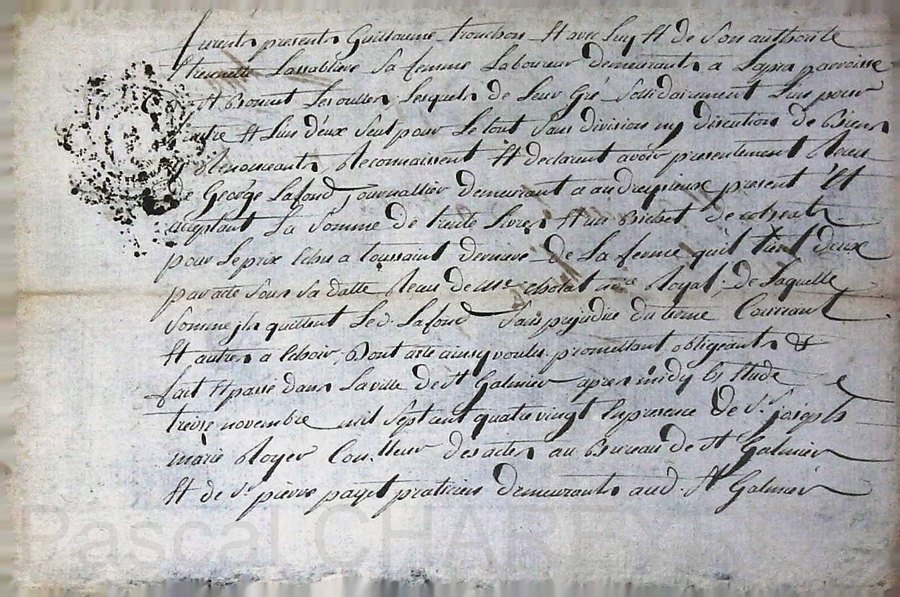 furent presents Guillaume trouchon Et avec luy Et de Son authorite
Lassabliere Sa femme Laboureur demeurants a paroisse
St Bonnet Lesoulles Lesquels de Leur Gré Sollidairement Lun pour
Lautre Et Lun deux Seul pour Le tout Sans division ny discution de Biens
y Renoncants Reconnaissent Et declarent avoir presentement Receu
de George Lafond journallier demeurant a andrezieux present Et
acceptant La Somme de trente Livres Et un Bichet de
pour Le prix Echu a toussaint derniere De La ferme quil tient deux
par acte Sous Sa datte Receu de Me cholat nore Royal, de Laquelle
Somme ils quittent Led. Lafond Sans prejudice du terme Courrant
Et autres a Echoir, Dont acte ainsy voulu promettant obligeants &
fait Et passé dans La ville de St Galmier apres midy Es Etude
treize novembre mil Sept cent quatre vingt En presence de Sr. Joseph
marie Royer Con.lleur des actes au Bureau de St Galmier
Et de Sr. pierre payet praticien demeurants aud. St Galmier
Pascal CHAREYRON